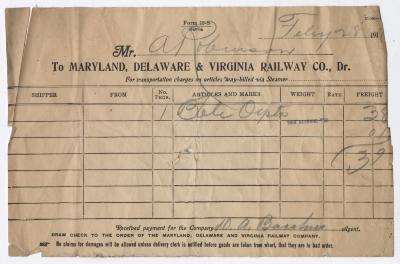 Form 19-S
Feby 28 191
Mr. A Robinson
To MARYLAND, DELAWARE & VIRGINIA RAILWAY CO., Dr.
For transportation charges on articles way-billed via Steamer
SHIPPER FROM No. Pkgs. ARTICLES AND MARKS WEIGHT RATE FREIGHT
1 Bble 38
01
39
Received payment for the Company Agent.
DRAW CHECK TO THE ORDER OF THE MARYLAND, DELAWARE AND VIRGINIA RAILWAY COMPANY.
No claims for damages will be allowed unless delivery clerk is notified before goods are taken from wharf, that they are in bad order.